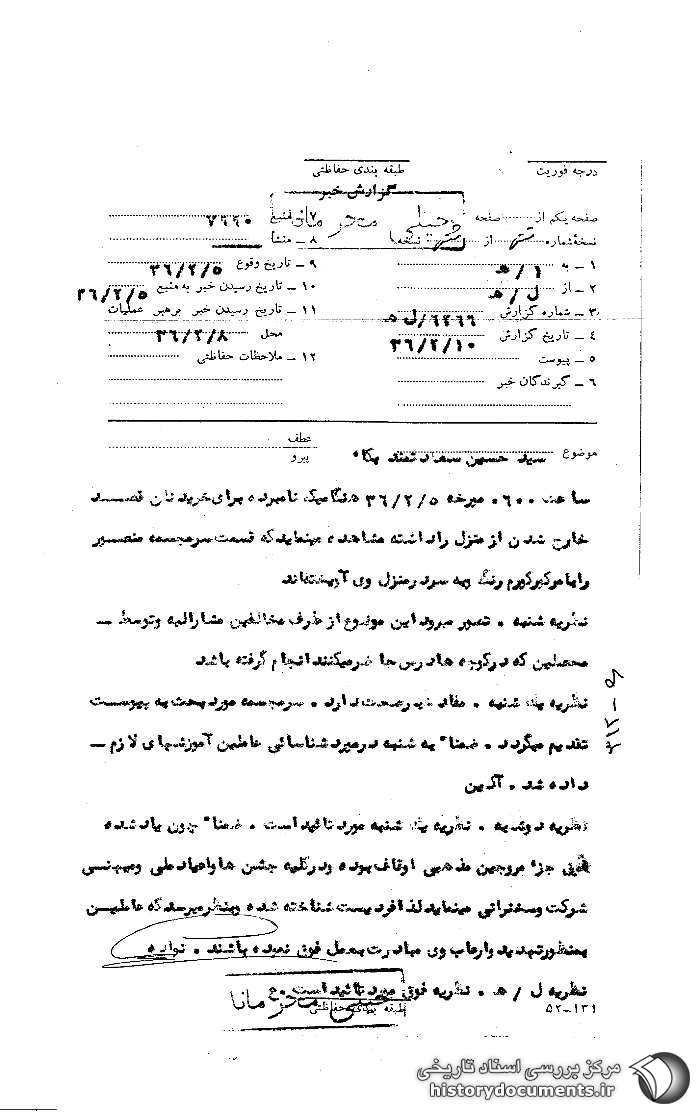 درجه فوریت
طبقه بندی حفاظتی
گزارش خبر
خیلی محرمانه
صفحه یکم از صفحه
۷ - منبع ۷۶۶۰
نسخه شماره از نسخه
۸ - منشا
۱ - به ۱ / ه‍
۹ - تاریخ وقوع ۳۶/۲/۵
۲ - از ل / ه‍
۱۰ - تاریخ رسیدن خبر به منبع ۳۶/۲/۵
۳ - شماره گزارش ۶۲۶۶/ل ه‍
۱۱ - تاریخ رسیدن خبر برهبر عملیات
۴ - تاریخ گزارش ۳۶/۲/۱۰
محل ۳۶/۲/۸
۵ - پیوست
۱۲ - ملاحظات حفاظتی
۶ - گیرندگان خبر
عطف
موضوع سید حسین سعادتمند
پیرو
ساعت ۰۶۰۰ مورخه ۳۶/۲/۵ هنگامیکه نامبرده برای خرید نان قصد
خارج شدن از منزل را داشته مشاهده مینماید که قسمت سر مجسمه
را با رنگ به سر در منزل وی آویخته‌اند
نظریه شنبه . تصور میرود این موضوع از طرف مخالفین مشارالیه و توسط -
محصلین که در کوچه ها درس حاضر میکنند انجام گرفته باشد
نظریه یک شنبه . مفاد خبر صحت دارد . سر مجسمه مورد بحث به پیوست
تقدیم میگردد . ضمناً به شنبه در مورد شناسائی عاملین آموزشهای لازم -
داده شد . آذین
نظریه دوشنبه . نظریه یک شنبه مورد تائید است . ضمناً چون یاد شده
فوق جزء مروجین مذهبی اوقاف بوده و در کلیه جشن ها و اعیاد ملی و میهنی
شرکت و سخنرانی مینماید لذا فردیست شناخته شده و بنظر میرسد که عاملین
بمنظور تهدید و ارعاب وی مبادرت بعمل فوق نموده باشند .
نظریه ل / ه‍ . نظریه فوق مورد تائید است . ع
خیلی محرمانه
طبقه بندی حفاظتی
۵۲-۱۳۱
مرکز بررسی اسناد تاریخی
historydocuments.ir